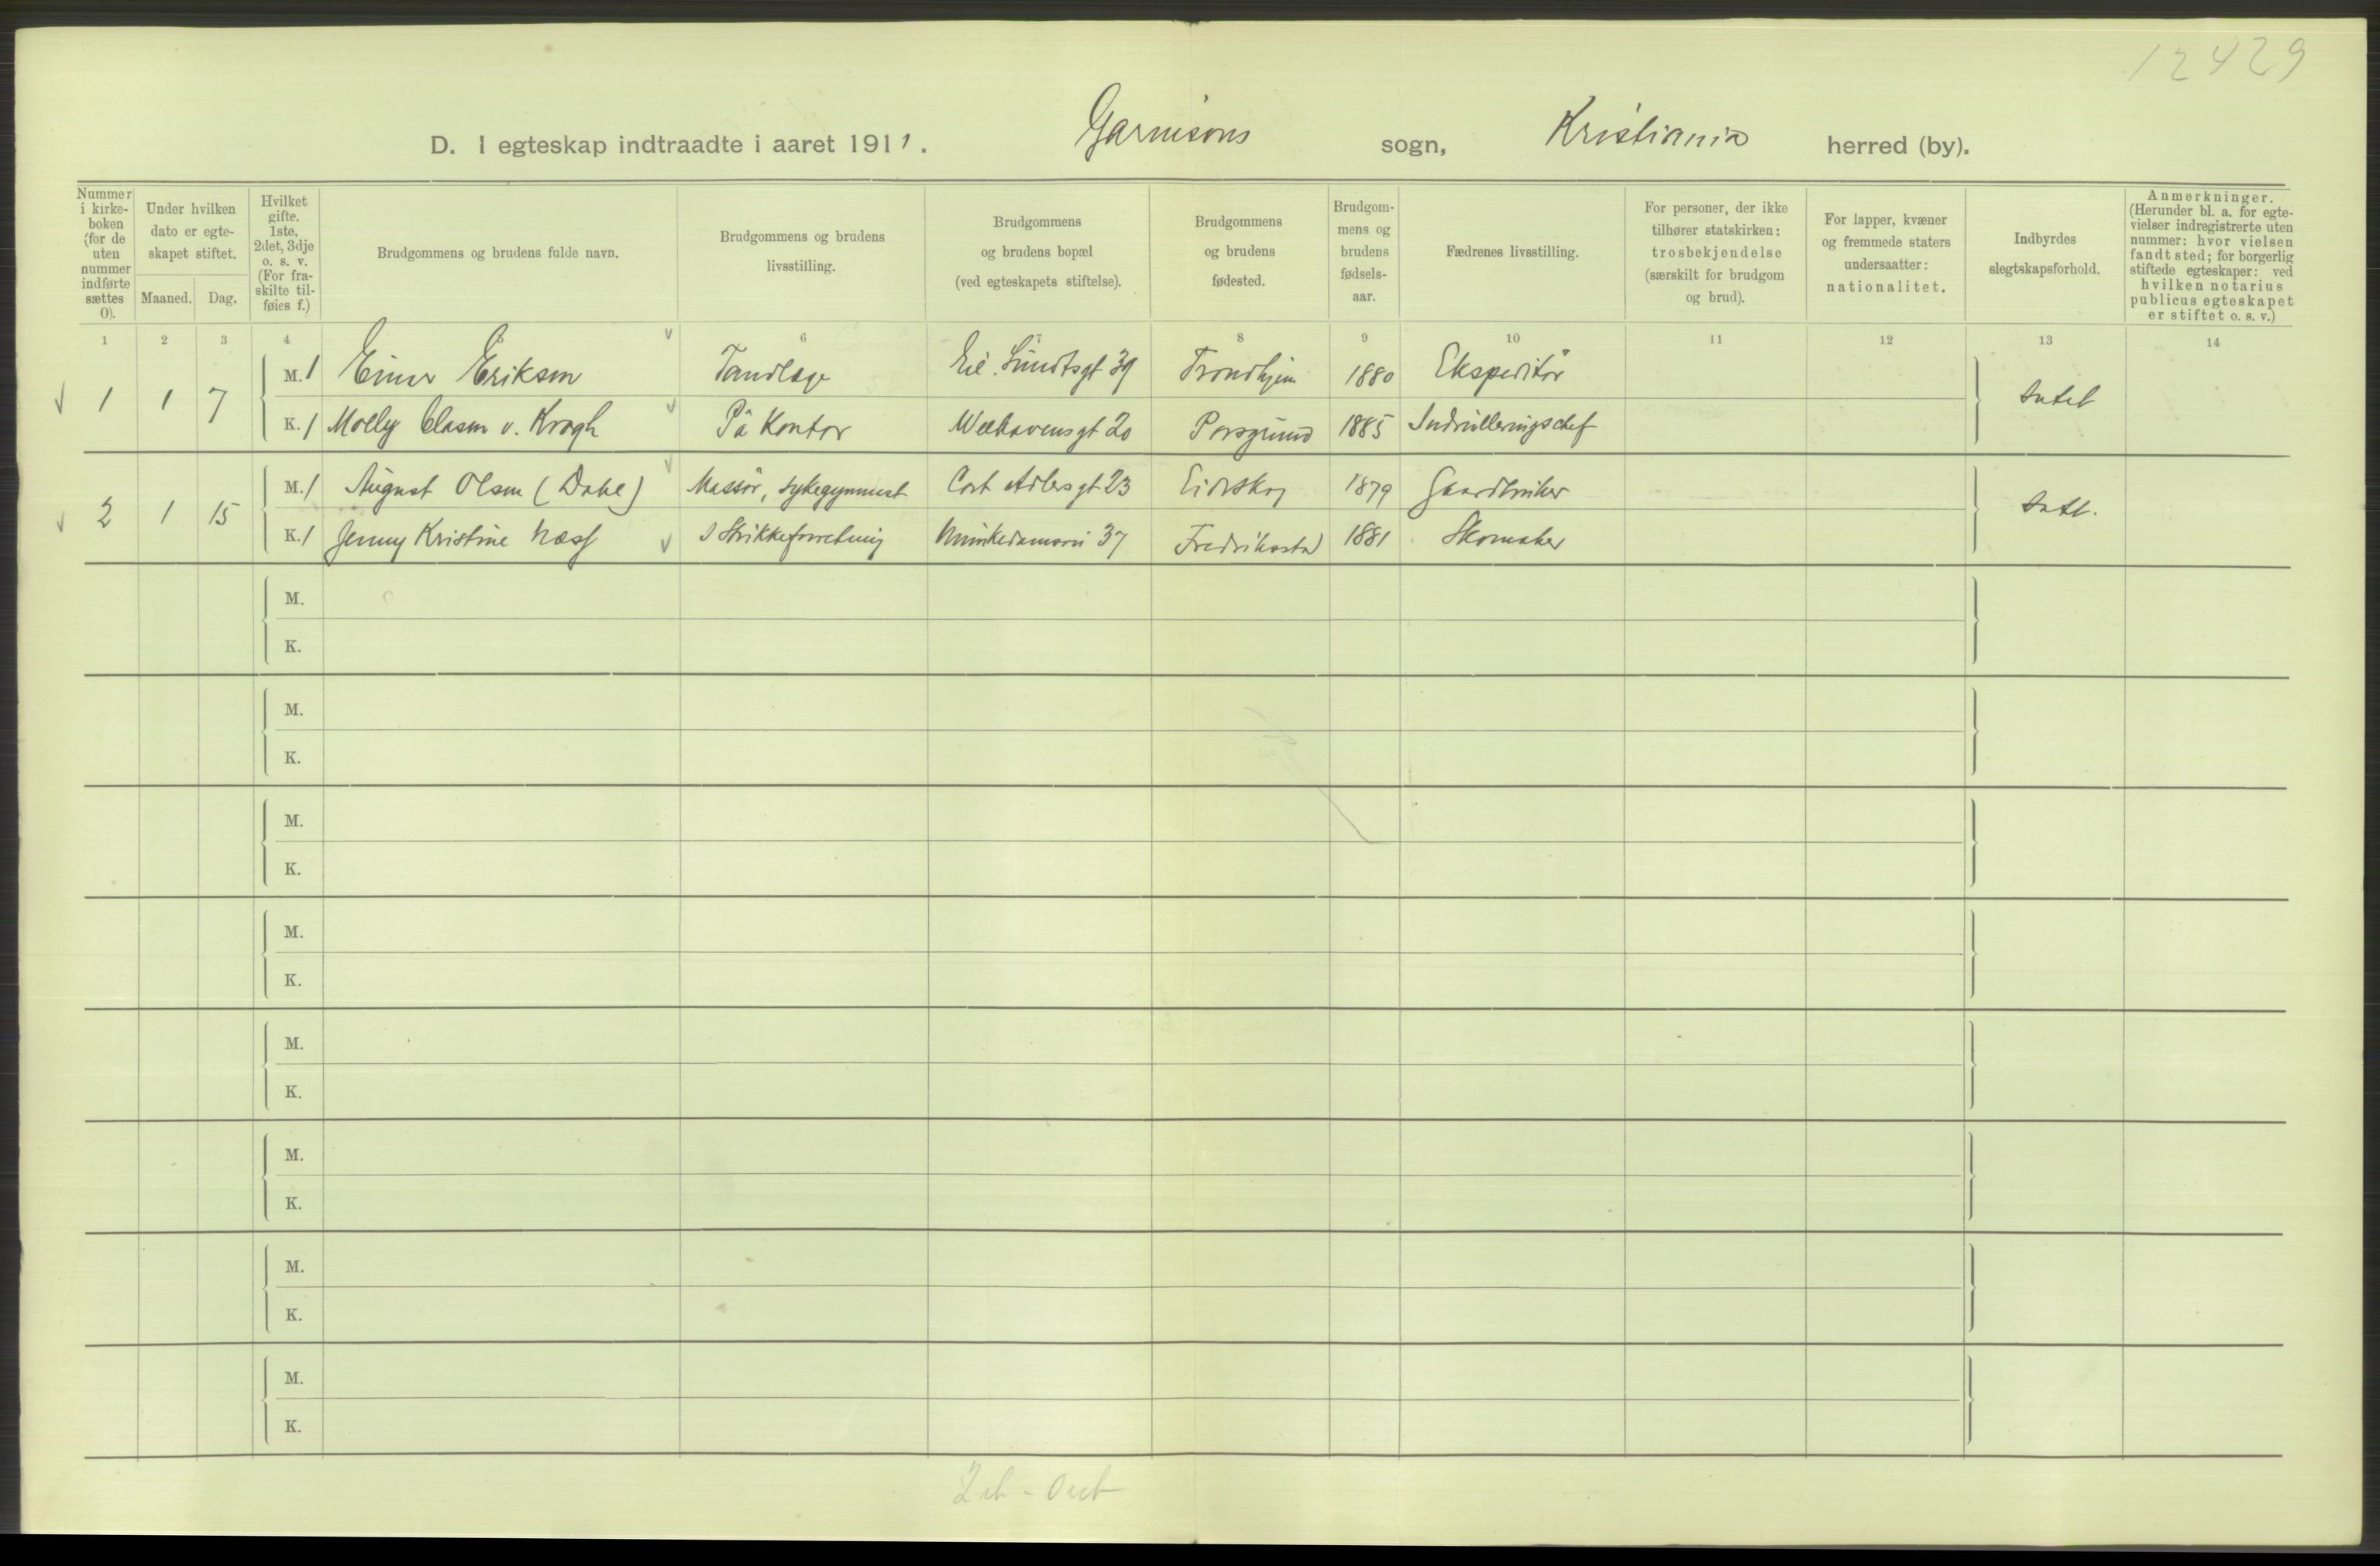 12429
D. I egteskap indtraadte i aaret 1911. Garnisons sogn, Kristiania herred (by).
Nummer i kirkeboken (for de uten nummer indførte sættes 0).
Under hvilken dato er egteskapet stiftet.
Maaned. Dag.
Hvilket gifte. 1ste, 2det, 3dje o. s. v. (For fraskilte tilføies f.)
Brudgommens og brudens fulde navn.
Brudgommens og brudens livsstilling.
Brudgommens og brudens bopæl (ved egteskapets stiftelse).
Brudgommens og brudens fødested.
Brudgommens og brudens fødselsaar.
Fædrenes livsstilling.
For personer, der ikke tilhører statskirken: trosbekjendelse (særskilt for brudgom og brud).
For lapper, kvæner og fremmede staters undersaatter: nationalitet.
Indbyrdes slegtskapsforhold.
Anmerkninger. (Herunder bl. a. for egtevielser indregistrerte uten nummer: hvor vielsen fandt sted; for borgerlig stiftede egteskaper: ved hvilken notarius publicus egteskapet er stiftet o. s. v.)
1 2 3 4 6 7 8 9 10 11 12 13 14
1 1 7 M. 1 Einar Eriksen Tandlæge Eil. Sundtsgt 39 Trondhjem 1880 Ekspeditør Intet
K. 1 Molly Clasen v. Krogh På Kontor Welhavensgt 20 Porsgrund 1885 Indrulleringschef
2 1 15 M. 1 August Olsen (Dahl) Massør, sykegymnast Cort Adlersgt 23 Eidskog 1879 Gaardbruker Intet.
K. 1 Jenny Kristine Næss I Strikkeforretning Munkedamsvei 37 Fredrikstad 1881 Skomaker
M.
K.
M.
K.
M.
K.
M.
K.
M.
K.
M.
K.
M.
K.
M.
K.